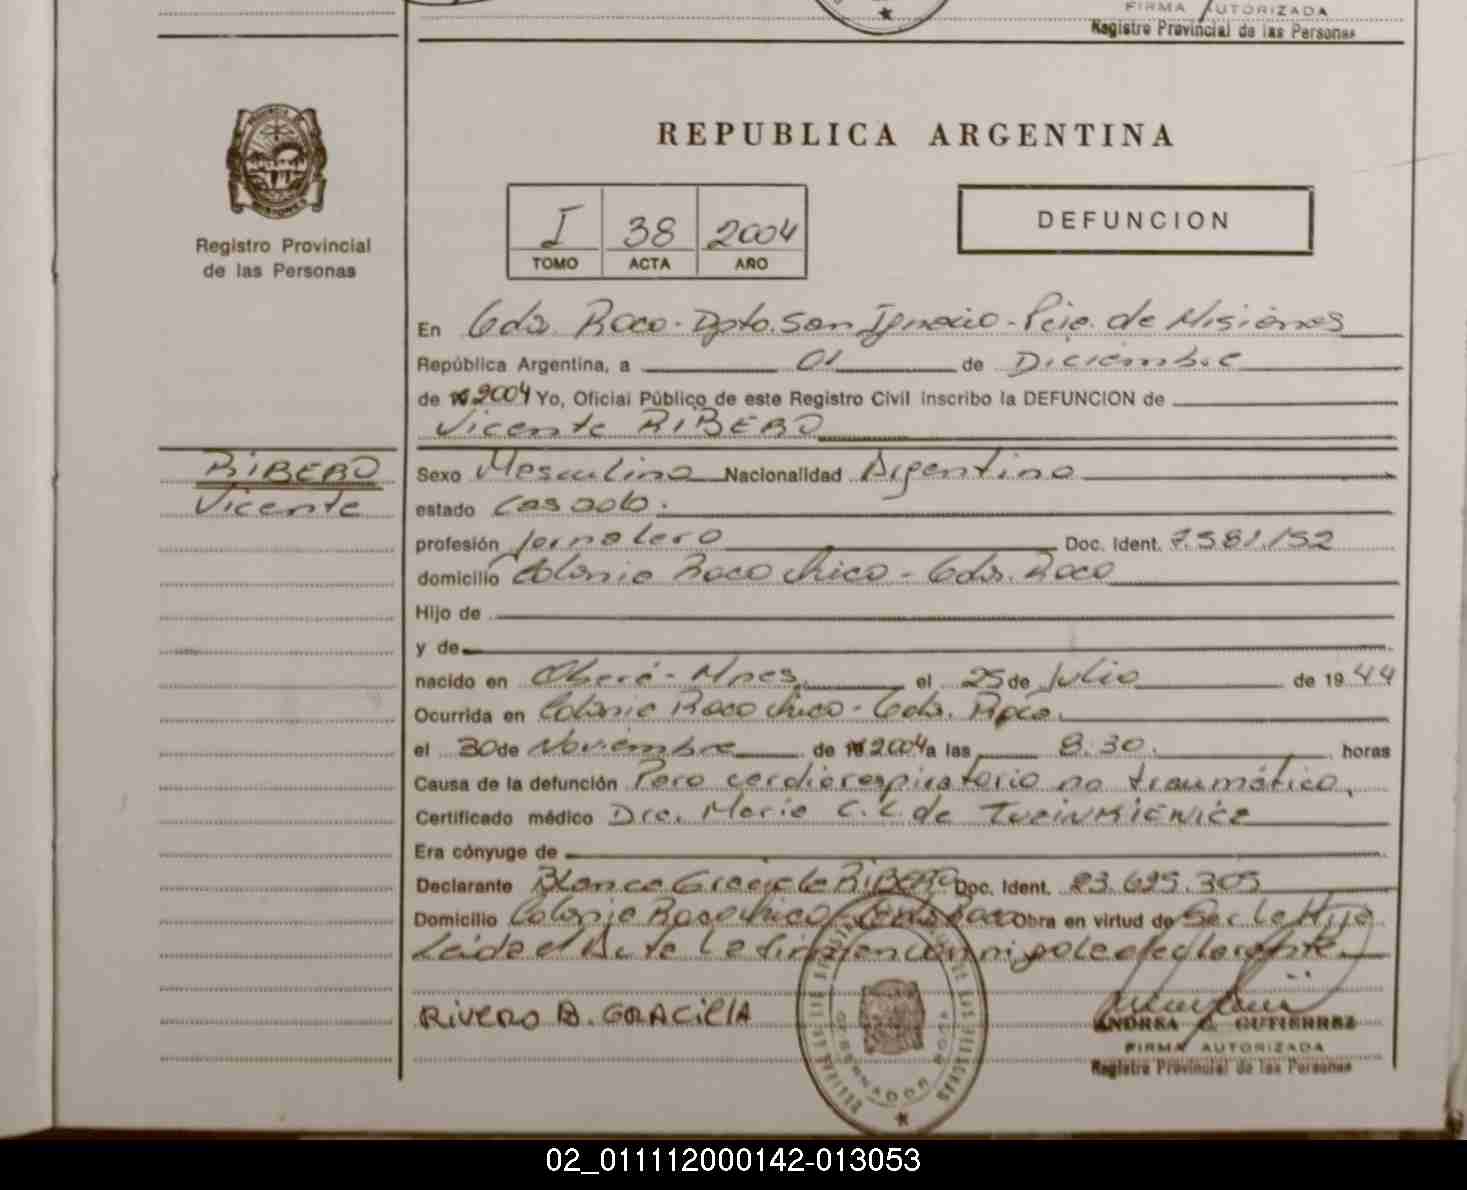 FIRMA AUTORIZADA
Registro Provincial de las Personas
REPUBLICA ARGENTINA
Registro Provincial
de las Personas
I 38 2004
TOMO ACTA AÑO
DEFUNCION
En Gdor. Roca - Dpto. San Ignacio - Pcia. de Misiones
República Argentina, a 01 de Diciembre
de 2004 Yo, Oficial Público de este Registro Civil inscribo la DEFUNCION de
Vicente RIBERO
RIBERO
Vicente
Sexo Masculino Nacionalidad Argentina
estado Casado.
profesión Jornalero Doc. Ident. 7.581.152
domicilio Colonia Roca Chica - Gdor. Roca
Hijo de
y de
nacido en Oberá - Mnes. el 25 de Julio de 1944
Ocurrida en Colonia Roca Chica - Gdor. Roca.
el 30 de Noviembre de 2004 a las 8.30. horas
Causa de la defunción Paro cardiorespiratorio no traumático.
Certificado médico Dra. Maria C. L. de
Era cónyuge de
Declarante Blanca Graciela RIBERO Doc. Ident. 23.695.305
Domicilio Colonia Roca Chica - Gdor. Roca Obra en virtud de Ser la Hija
Leida el Acta la firman conmigo la declarante
RIVERO B. GRACIELA
ANDREA C. GUTIERREZ
FIRMA AUTORIZADA
Registro Provincial de las Personas
GOBERNADOR ROCA
02_011112000142-013053